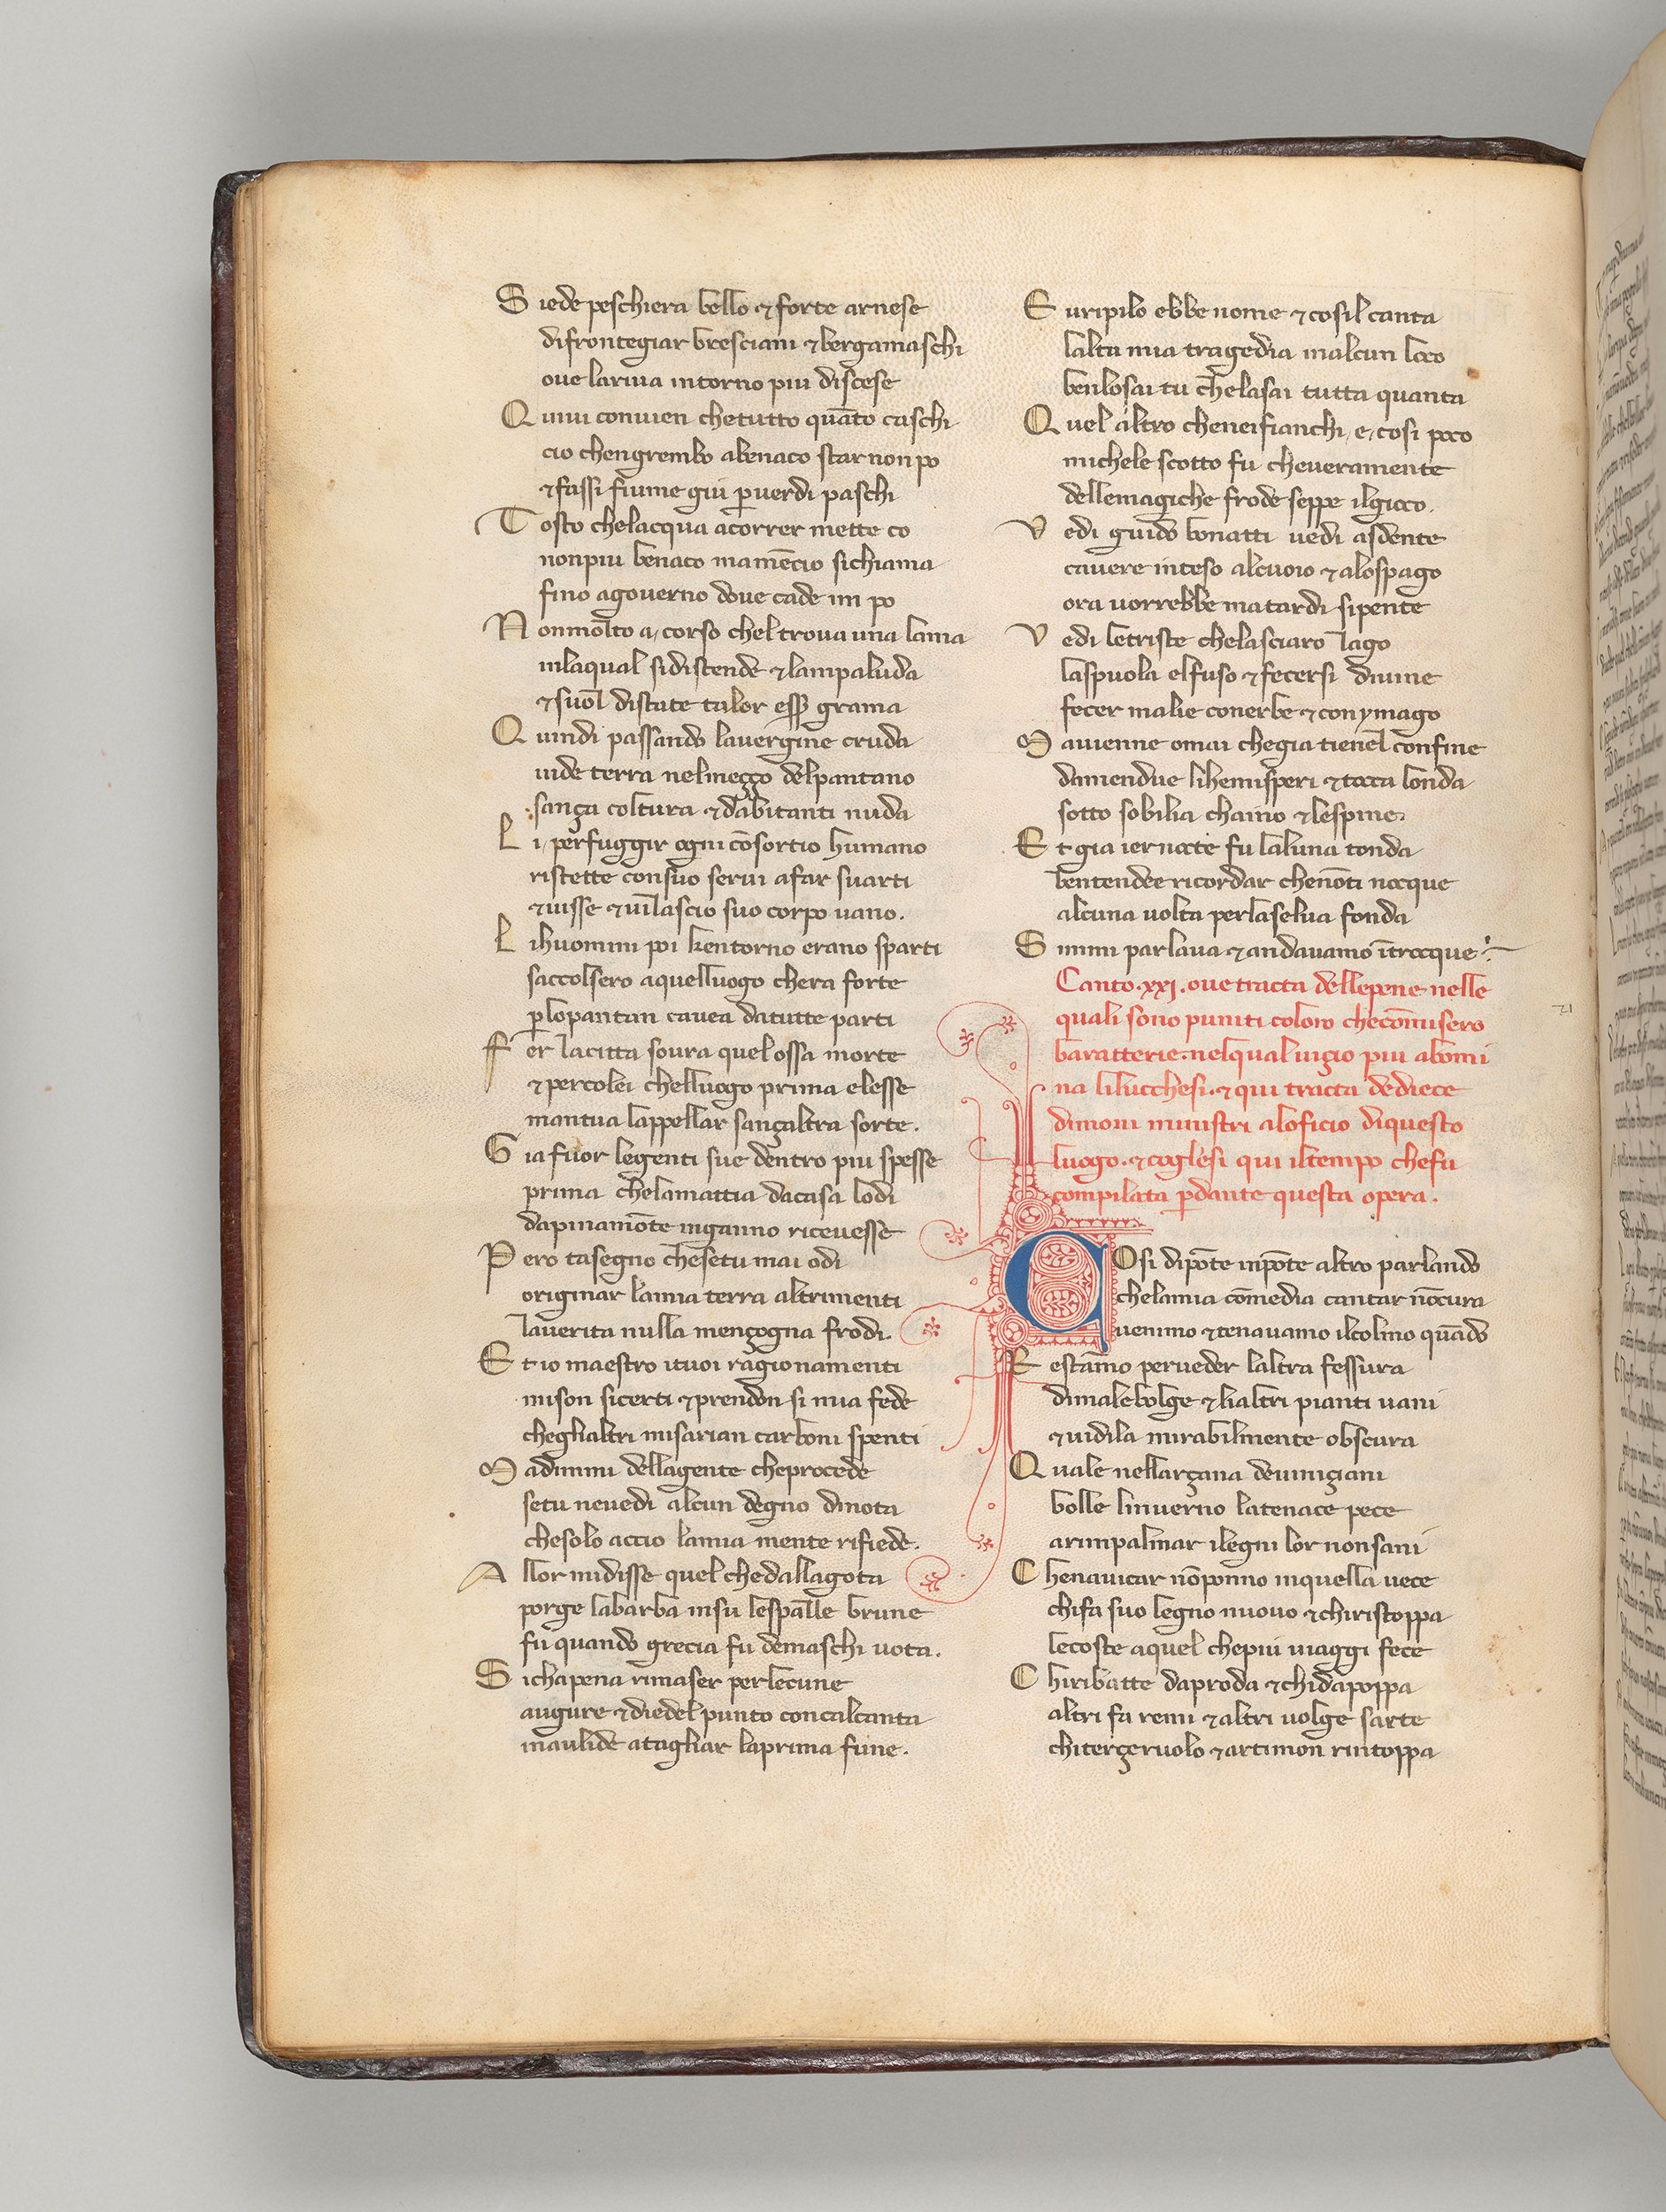 Siede peschiera bello ⁊ forte arnese
difrontegiar bresciani ⁊ bergamaschi
oue lariua intorno piu discese
Quiui conuien chetutto quāto caschi
cio chengrembo abenaco star non po
⁊ fassi fiume giu p̄ uerdi paschi
Tosto chelacqua acorrer mette co
nonpiu benaco mamēcio sichiama
fino agouerno doue cade im po
Nonmolto a, corso cheltroua una lama
inlaqual sidistende ⁊ lampaluda
⁊ suol distate talor ess̄ grama
Quindi passando lauergine cruda
uide terra nelmeçço delpantano
sança coltura ⁊ dabitanti nuda
Li, perfuggir ogni cōsortio humano
ristette consuo serui afar suarti
⁊ uisse ⁊ uilascio suo corpo uano.
Lihuomini poi kentorno erano sparti
saccolsero aquelluogo chera forte
p̄lopantan cauea datutte parti
Fer lacitta soura quelossa morte
⁊ percolei chelluogo prima elesse
mantua lappellar sançaltra sorte.
Gia fuor legenti sue dentro piu spesse
prima chelamattia dacasa lodi
dapinamōte inganno riceuesse
Pero tasegno chesetu mai odi
originar lamia terra altrimenti
lauerita nulla mençogna frodi.
Et io maestro ituoi ragionamenti
mison sicerti ⁊ prendon si mia fede
cheglialtri misarian carboni spenti
Madimmi dellagente cheprocede
setu neuedi alcun degno dinota
chesolo accio lamia mente rifiede.
Allor midisse quel chedallagota
porge labarba insu lespalle brune
fu quando grecia fu demaschi uota.
Sichapena rimaser perlecune
augure ⁊ diedel punto concalcanta
inaulide atagliar laprima fune.
Euripilo ebbe nome ⁊ cosil canta
lalta mia tragedia inalcun loco
benlosai tu chelasai tutta quanta
Quel altro cheneifianchi, e, cosi poco
michele scotto fu cheueramente
dellemagiche frode seppe ilgioco.
Vedi guido bonatti uedi asdente
cauere inteso alcuoio ⁊ alospago
ora uorrebbe matardi sipente
Vedi letriste chelasciaro lago
laspuola elfuso ⁊ fecersi diuine
fecer malie conerbe ⁊ conymago
Mauienne omai chegia tienel confine
damendue lihemisperi ⁊ tocca londa
sotto sobilia chaino ⁊ lespine.
Et gia iernocte fu laluna tonda
bentendee ricordar chenōti nocque
alcuna uolta perlaselua fonda
Simmi parlaua ⁊ andauamo ītrocque
Canto .xxj. oue tracta dellepene nelle
quali sono puniti coloro checōmisero
baratterie. nelqual uiçio piu abomi
na lilucchesi. ⁊ qui tracta dediece
dimoni ministri aloficio diquesto
luogo. ⁊ coglesi qui iltempo chefu
compilata p̄dante questa opera.
21
Cosi dipōte inpōte altro parlando
chelamia cōmedia cantar nōcura
uenimo ⁊ tenauamo ilcolmo quādo
Restāmo perueder laltra fessura
dimalebolge ⁊ lialtri pianti uani
⁊ uidila mirabilmente obscura
Quale nellarçana deuiniçiani
bolle linuerno latenace pece
arimpalmar ilegni lor nonsani
Chenauicar nōponno inquella uece
chifa suo legno nuouo ⁊ chiristoppa
lecoste aquel chepiu uiaggi fece
Chiribatte daproda ⁊ chidapoppa
altri fa remi ⁊ altri uolge sarte
chiterçeruolo ⁊ artimon rintoppa